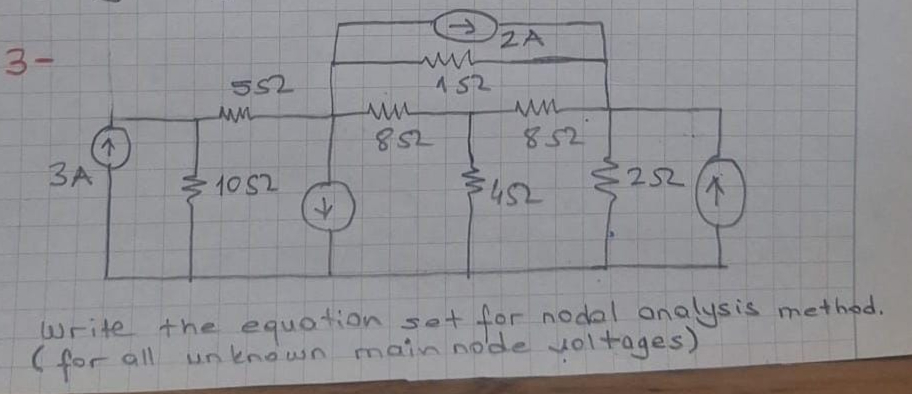 3-
2A
1Ω
5Ω
8Ω
8Ω
3A
10Ω
4Ω
2Ω
Write the equation set for nodal analysis method.
(for all unknown main node voltages)